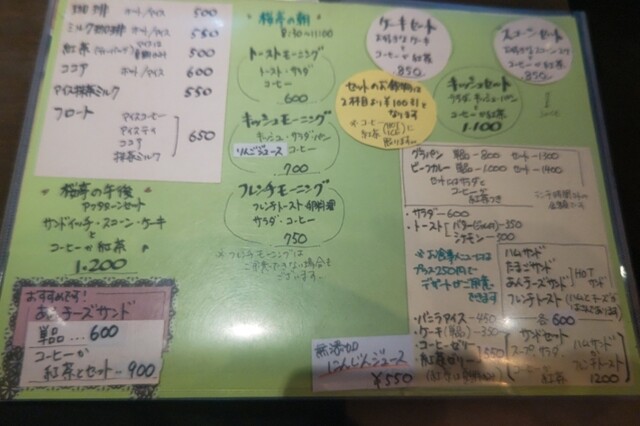 珈琲 ホット/アイス 500
ミルク珈琲 ホット/アイス 550
紅茶 550
ココア ホット/アイス 600
アイス抹茶ミルク 550
フロート アイスコーヒー
アイスティ
ココア
抹茶ミルク
650
桜亭の午後
アフタヌーンセット
サンドイッチ・スコーン・ケーキ
と
コーヒーか紅茶
1.200
おすすめです!
あんチーズサンド
単品…600
コーヒーか
紅茶とセット…900
桜亭の朝
8:30〜11:00
トーストモーニング
トースト・サラダ
コーヒー
600
キッシュモーニング
キッシュ・サラダ・パン
りんごジュース コーヒー
700
フレンチモーニング
フレンチトースト・卵料理
サラダ・コーヒー
750
※フレンチモーニングは
ご用意できない場合も
ございます
ケーキセット
お好きなケーキ
と
コーヒーか紅茶
850
スコーンセット
お好きなスコーン
と
コーヒーか紅茶
850
セットのお飲物は
2杯目より¥100引と
なります
キッシュセート
サラダ・キッシュ・パン
コーヒーか紅茶
1.100
グラタン 単品-800 セット-1300
ビーフカレー 単品-1.000 セット-1400
セットにはサラダと
コーヒーか
紅茶つき
・サラダ-600
・トースト バター 350
シナモン-500
※お食事メニューには
プラス250円で
デザートがご用意
できます
ハムサンド
たまごサンド
あんチーズサンド
フレンチトースト
HOTサンド
各600
・バニラアイス-450
・ケーキ(単品)-350
・コーヒーゼリー
・紅茶ゼリー
550
サンドセット
スープ サラダ
コーヒーか
紅茶
ハムサンド
フレンチトースト
1200
無添加
にんじんジュース
¥550